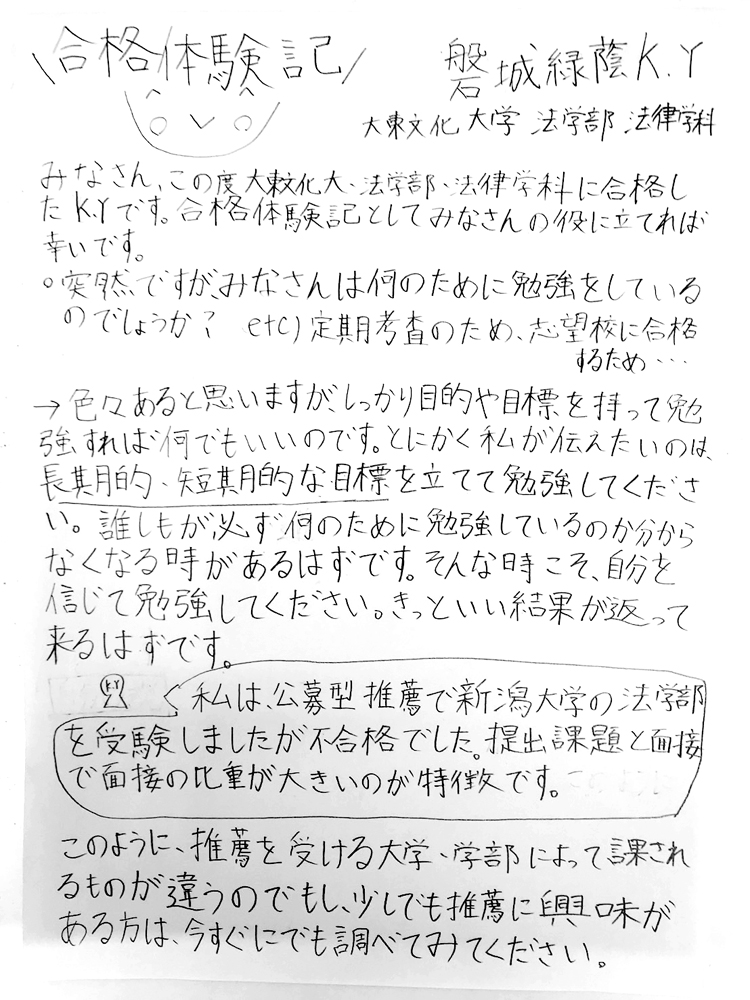 \合格体験記/
磐城緑蔭K.Y
大東文化大学 法学部 法律学科
みなさん、この度大東文化大・法学部・法律学科に合格し
たK.Yです。合格体験記としてみなさんの役に立てれば
幸いです。
○突然ですが、みなさんは何のために勉強をしている
のでしょうか? etc)定期考査のため、志望校に合格
するため…
→色々あると思いますが、しっかり目的や目標を持って勉
強すれば何でもいいのです。とにかく私が伝えたいのは、
長期的・短期的な目標を立てて勉強してくださ
い。誰しもが必ず何のために勉強しているのか分から
なくなる時があるはずです。そんな時こそ、自分を
信じて勉強してください。きっといい結果が返って
来るはずです。
K.Y
私は、公募型推薦で新潟大学の法学部
を受験しましたが不合格でした。提出課題と面接
で面接の比重が大きいのが特徴です。
このように、推薦を受ける大学・学部によって課され
るものが違うのでもし、少しでも推薦に興味が
ある方は、今すぐにでも調べてみてください。